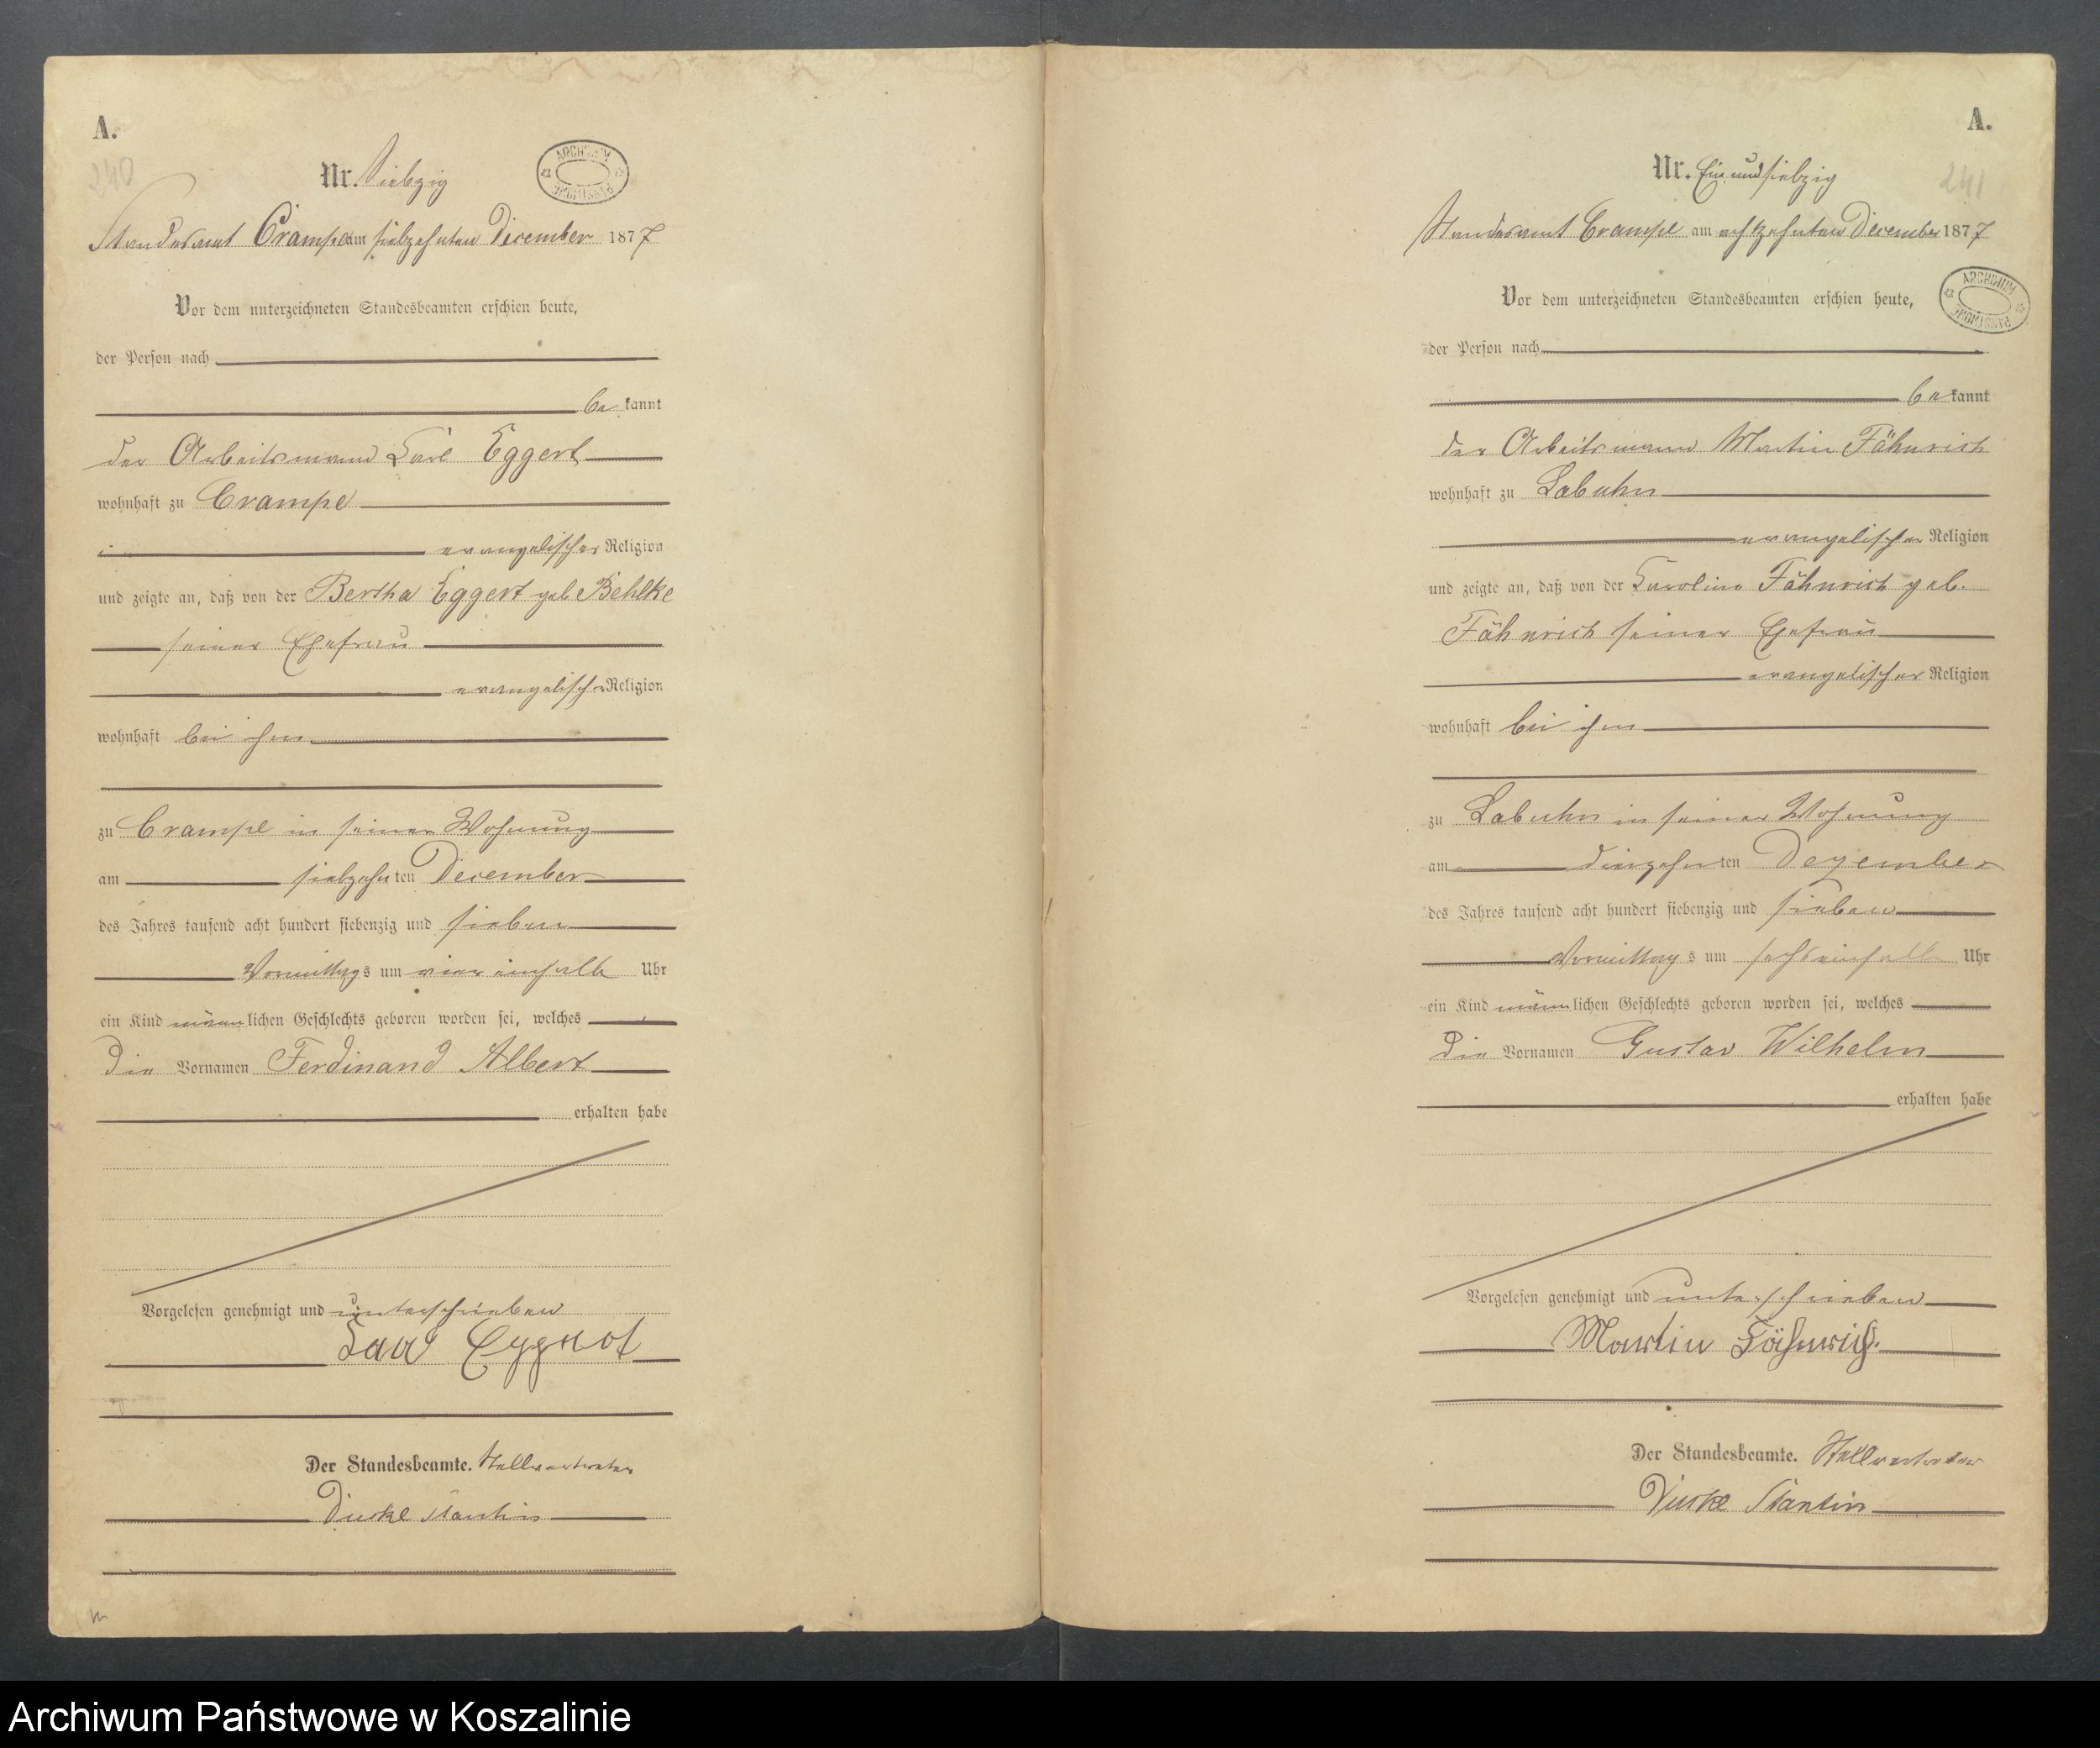 A.
240
Nr. Siebzig
ARCHIWUM PAŃSTWOWE
Standesamt Crampe am siebzehnten December 1877
Vor dem unterzeichneten Standesbeamten erschien heute,
der Person nach
bekannt
der Arbeitsmann Carl Eggert
wohnhaft zu Crampe
evangelischer Religion
und zeigte an, daß von der Bertha Eggert geb Behlke
seiner Ehefrau
evangelischer Religion
wohnhaft bei ihm
zu Crampe in seiner Wohnung
am siebzehnten December
des Jahres tausend acht hundert siebenzig und sieben
Vormittags um vier einhalb Uhr
ein Kind männlichen Geschlechts geboren worden sei, welches
die Vornamen Ferdinand Albert
erhalten habe
Vorgelesen genehmigt und unterschrieben
Der Standesbeamte. Stellvertreter
A.
241
Nr. Ein und siebzig
Standesamt Crampe am achtzehnten December 1877
ARCHIWUM PAŃSTWOWE
Vor dem unterzeichneten Standesbeamten erschien heute,
der Person nach
bekannt
der Arbeitsmann Martin Fähnrich
wohnhaft zu Labuhn
evangelischer Religion
und zeigte an, daß von der Caroline Fähnrich geb.
Fähnrich seiner Ehefrau
evangelischer Religion
wohnhaft bei ihm
zu Labuhn in seiner Wohnung
am ten Dezember
des Jahres tausend acht hundert siebenzig und sieben
Vormittags um sechs einhalb Uhr
ein Kind männlichen Geschlechts geboren worden sei, welches
die Vornamen Gustav Wilhelm
erhalten habe
Vorgelesen genehmigt und unterschrieben
Martin Fähnrich.
Der Standesbeamte. Stellvertreter
Archiwum Państwowe w Koszalinie